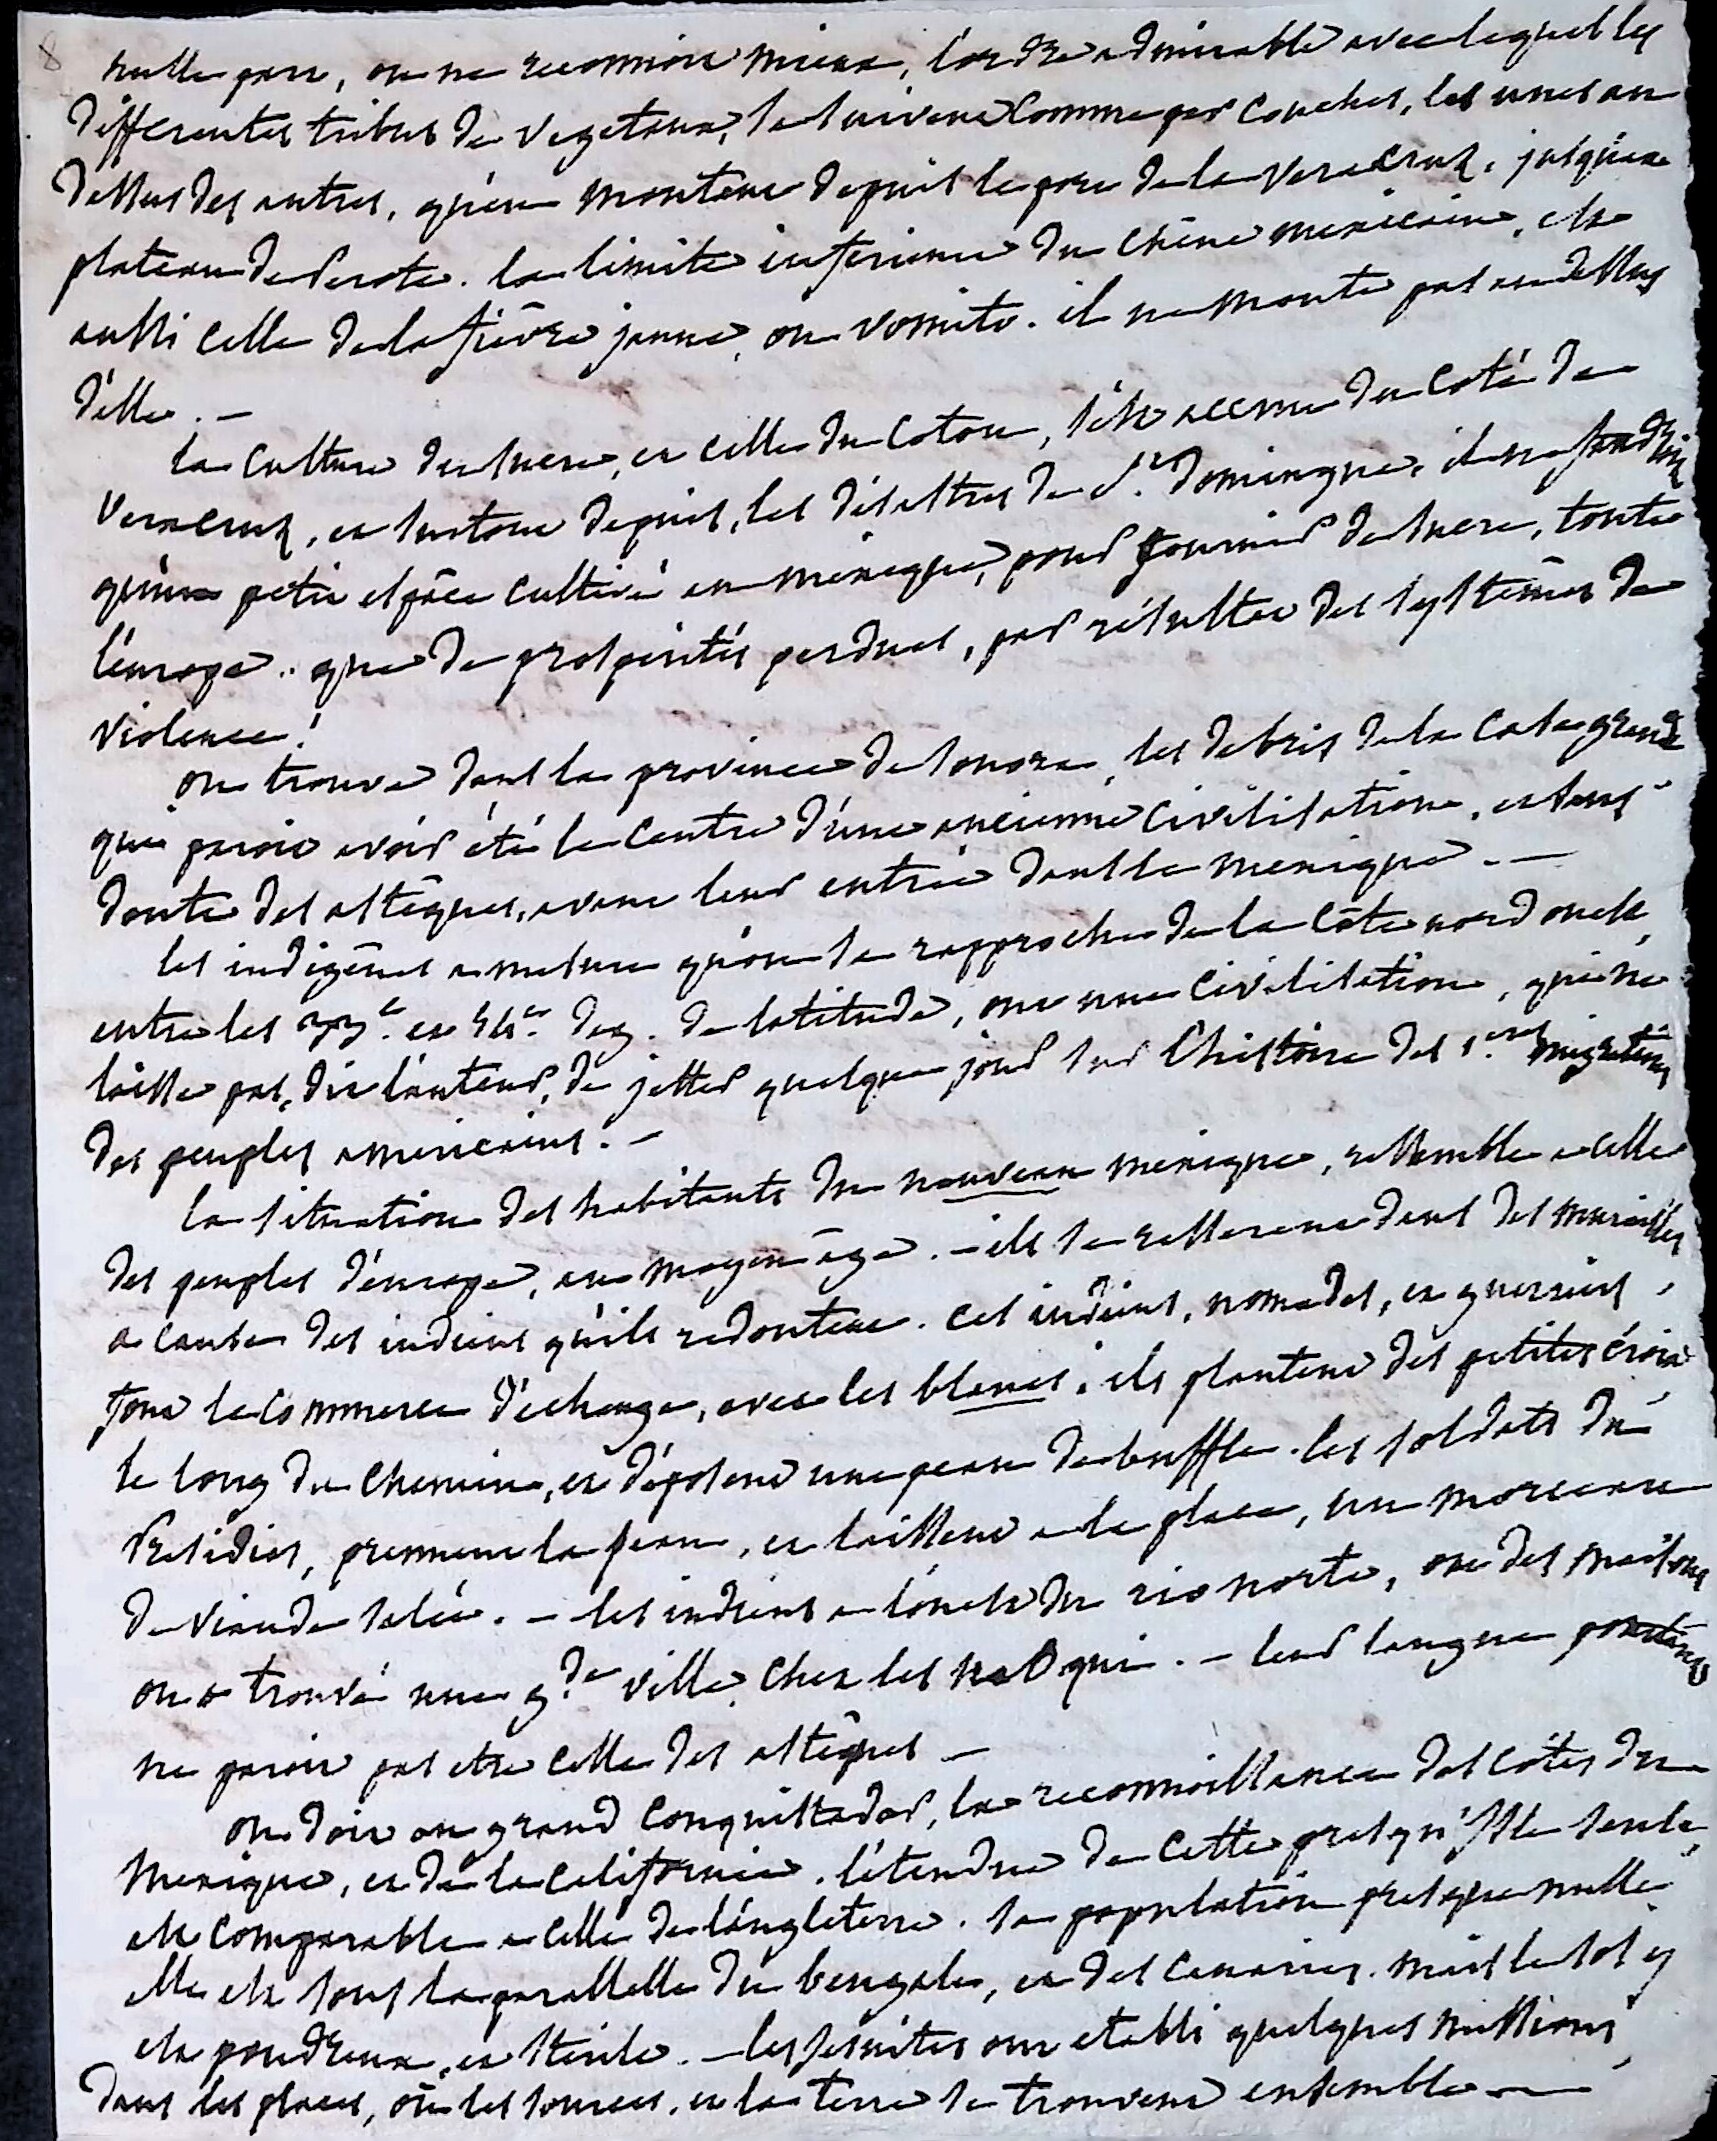 8
nulle part, on ne reconnoit mieux, l'ordre admirable avec lequel les
differentes tribus de vegetaux, se suivent comme par couches, les unes au
dessus des autres, qu'en montant depuis le port de la Vera Cruz, jusqu'au
plateau de Perote. la limite inferieure du chêne mexicain, est
aussi celle de la fièvre jaune, ou vomito. il ne monte pas au dessus
d'elle. —
la culture du sucre, et celle du coton, s'est accrue du coté de
Vera Cruz, et surtout depuis, les désastres de St. Domingue. il ne faudroit
qu'un petit espace cultivé au mexique, pour fournir de sucre, toute
l'europe. que de prosperités perdues, par résultat des systêmes de
violence!
on trouve dans la province de Sonora, les debris de la Casa grande
qui paroit avoir été le centre d'une ancienne civilisation, et sans
doute des astèques, avant leur entrée dans le mexique. —
les indigènes a mesure qu'on se rapproche de la côte nord ouest,
entre les 33e. et 54e. deg. de latitude, ont une civilisation, qui ne
laisse pas, dit l'auteur, de jetter quelque jour sur l'histoire des 1.eres migrations
des peuples americains. —
la situation des habitants du nouveau mexique, ressemble a celle
des peuples d'europe, au moyen âge. — ils se resserrent dans des murailles
a cause des indiens qu'ils redoutent. ces indiens, nomades, et guerriers,
font le commerce d'échange, avec les blancs. ils plantent des petites croix
le long du chemin, et déposent une peau de buffle. les soldats du
Presidios, prennent la peau, et laissent a la place, un morceau
de viande salée. — les indiens a l'ouest du rio norte, ont des maisons
on a trouvé une gde ville, chez les moqui. — leur langue pourtant
ne paroit pas etre celle des astèques —
on doit au grand Conquistador, la reconnoissance des côtes du
Mexique, et de la Californie. l'étendue de cette presqu'Isle seule,
est comparable a celle de l'angleterre. sa population presque nulle.
elle est sous la parallelle du bengale, et des canaries. mais le sol y
est poudreux, et sterile. — les Jesuites ont etabli quelques missions,
dans les places, où les sources, et la terre se trouvent ensemble —